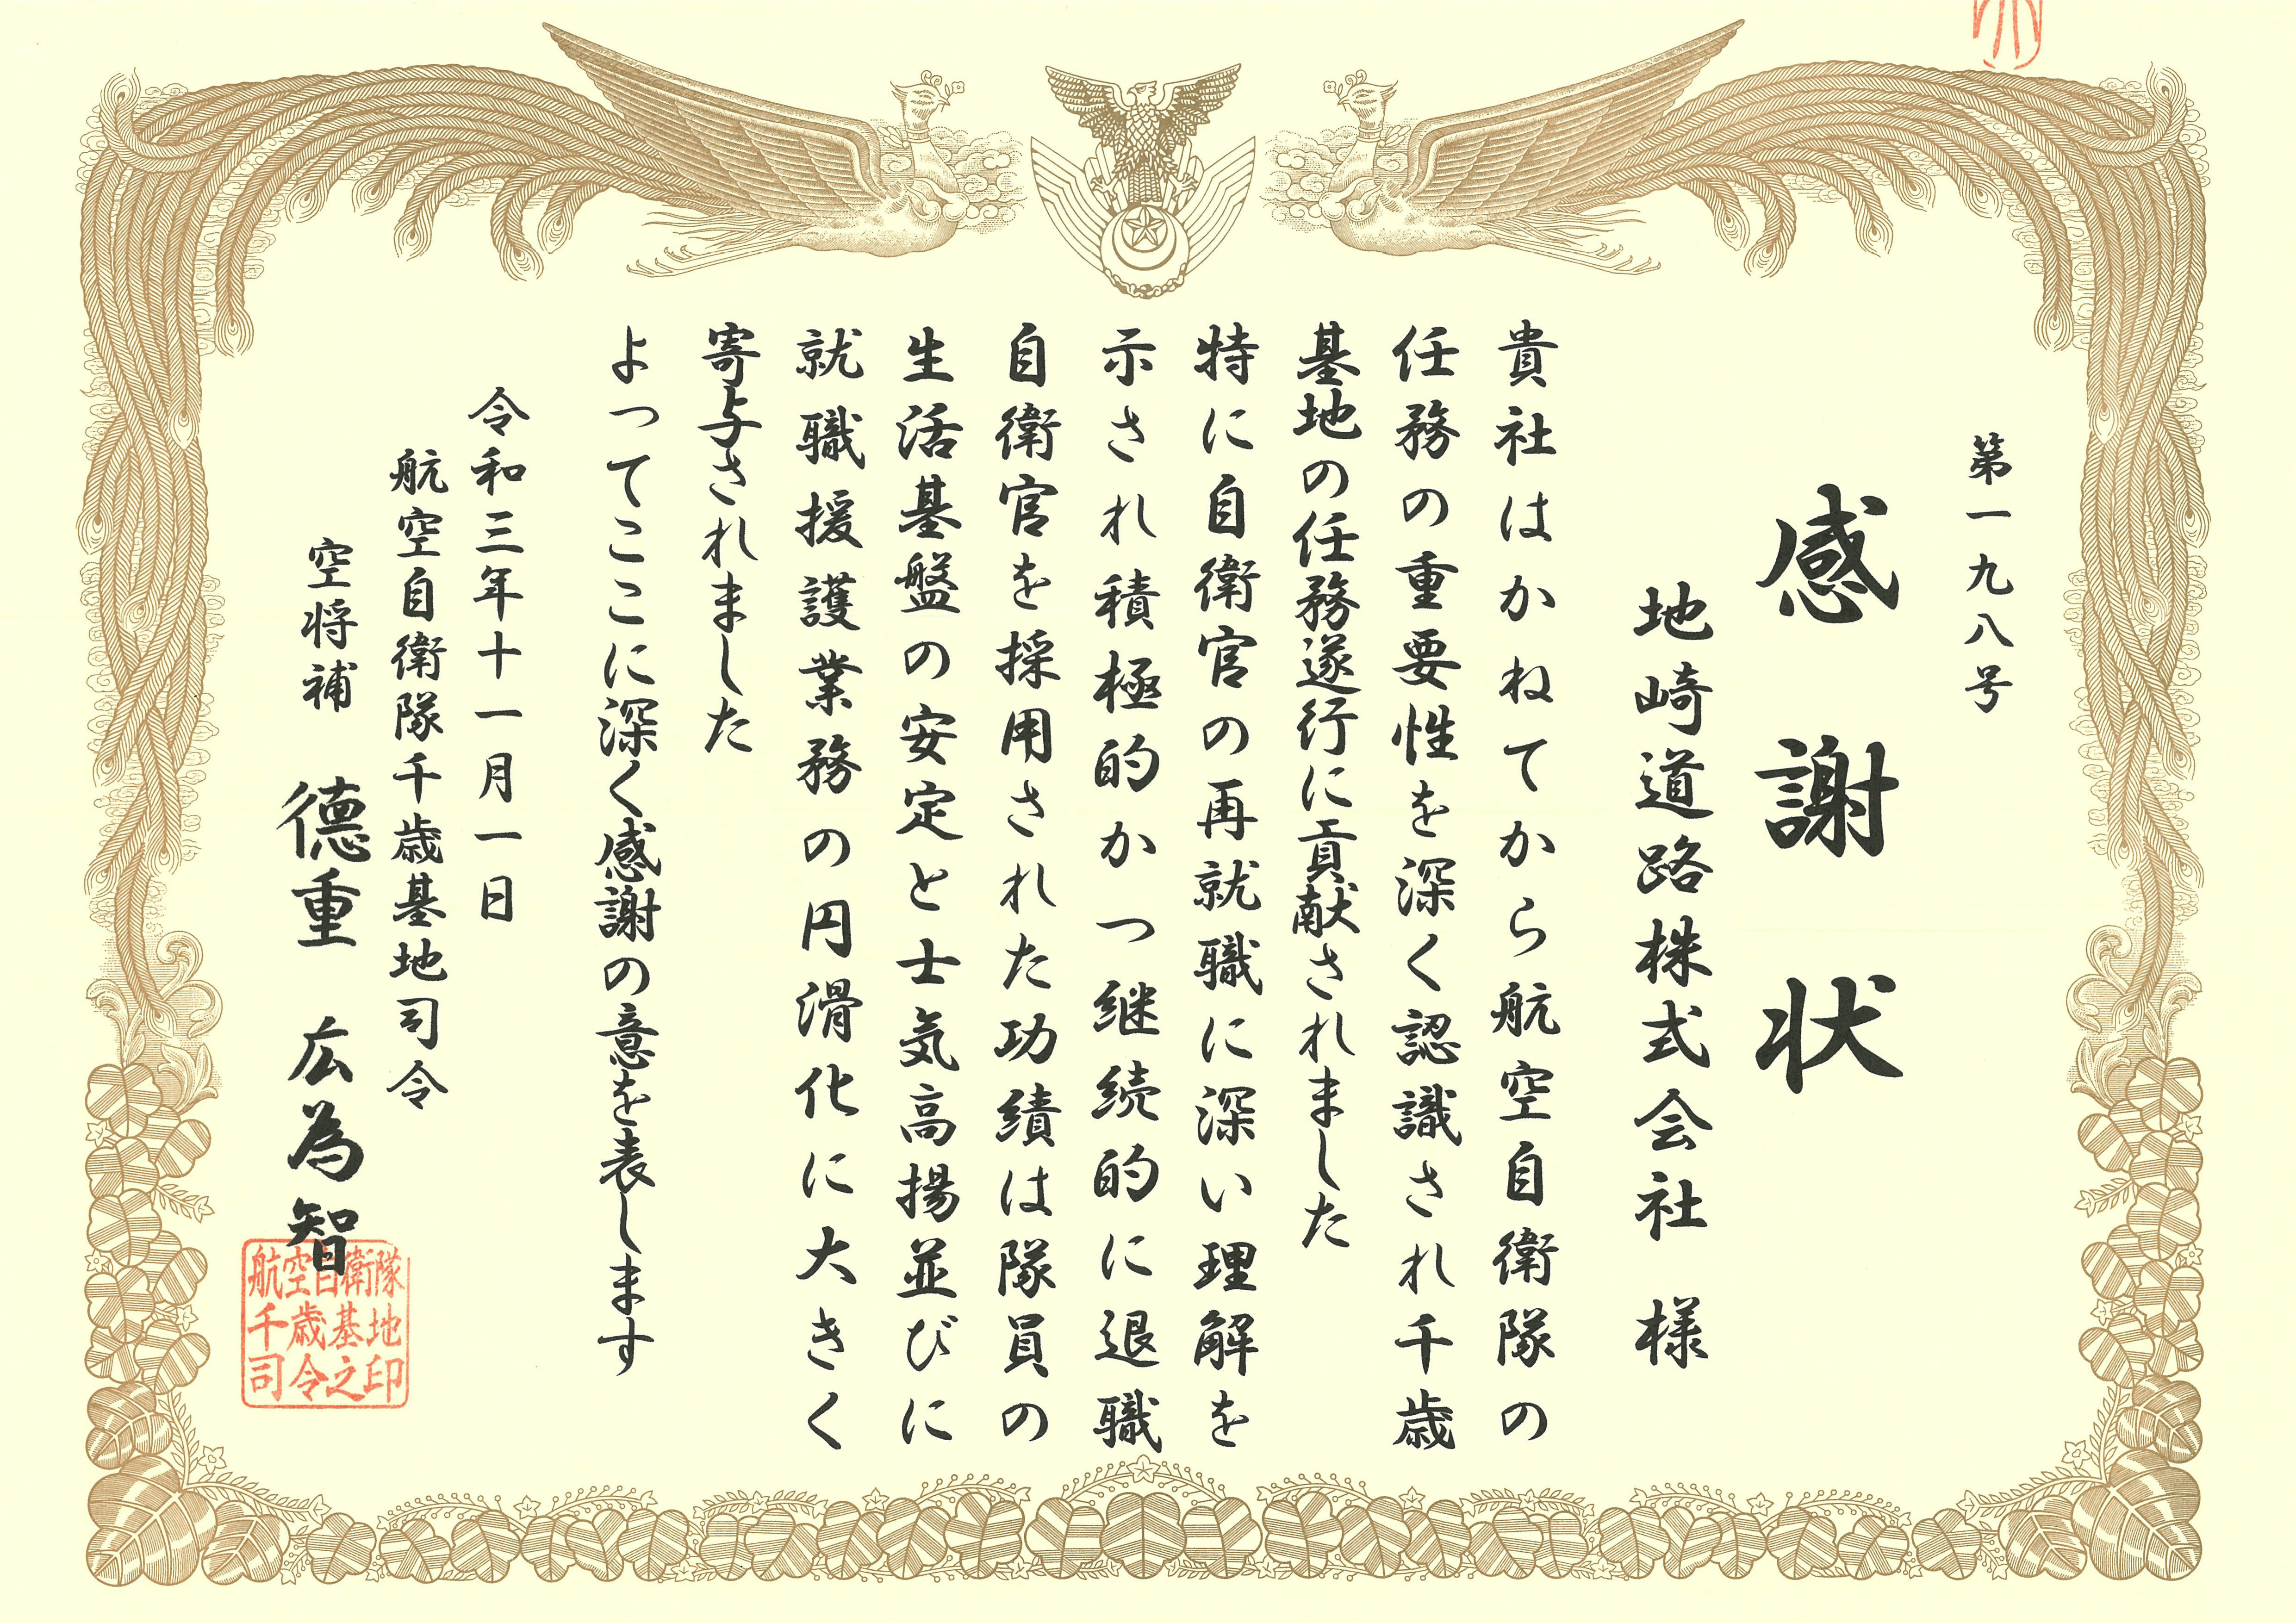 第一九八号
感謝状
地崎道路株式会社 様
貴社はかねてから航空自衛隊の
任務の重要性を深く認識され千歳
基地の任務遂行に貢献されました
特に自衛官の再就職に深い理解を
示され積極的かつ継続的に退職
自衛官を採用された功績は隊員の
生活基盤の安定と士気高揚並びに
就職援護業務の円滑化に大きく
寄与されました
よってここに深く感謝の意を表します
令和三年十一月一日
航空自衛隊千歳基地司令
空将補 德重 広為智
航空自衛隊
千歳基地
司令之印